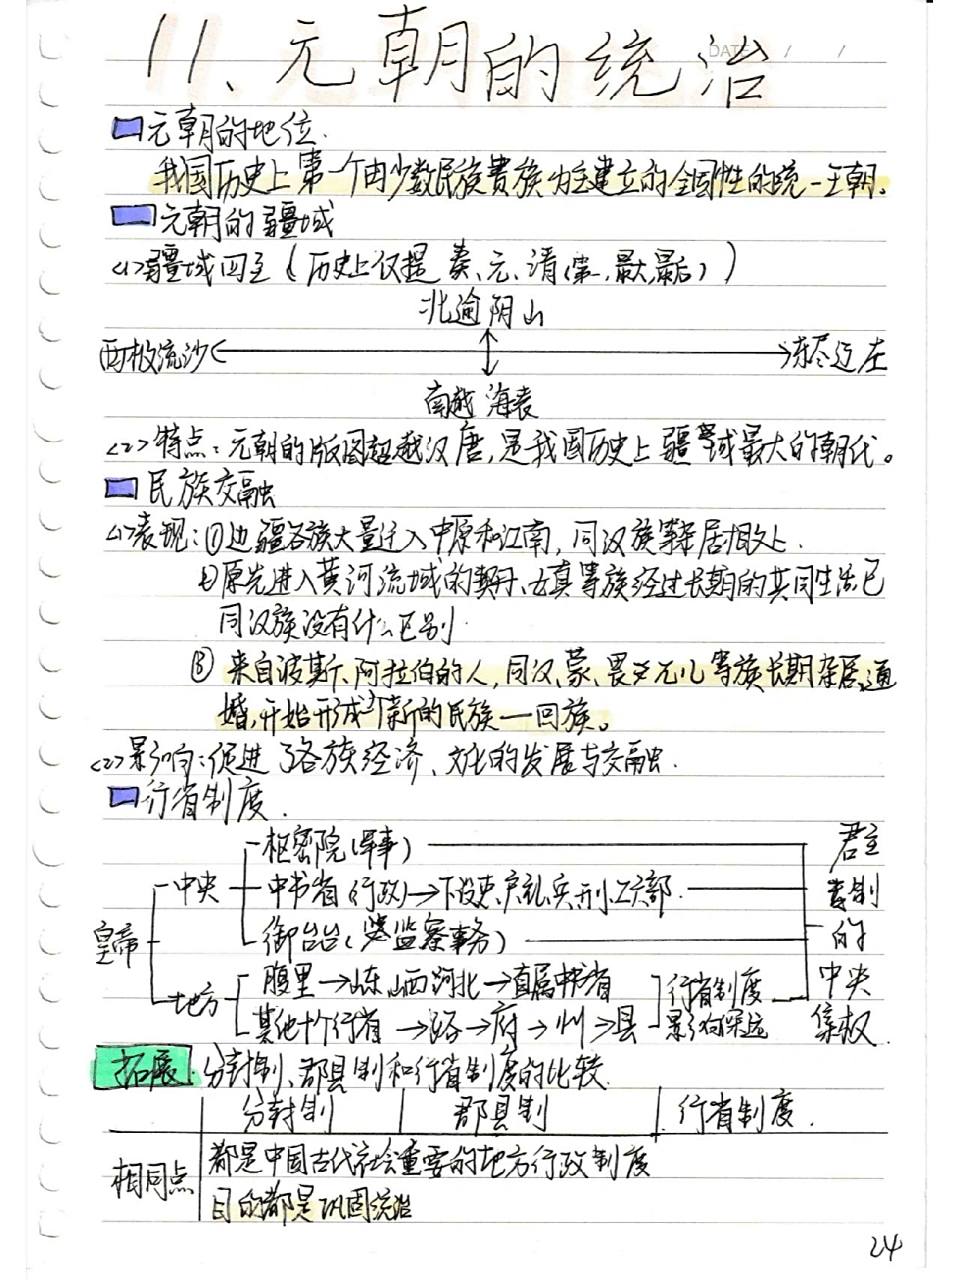 11、元朝的统治
DATE / /
元朝的地位.
我国历史上第一个由少数民族贵族为主建立的全国性的统一王朝。
元朝的疆域
<1>疆域四至(历史上仅提秦、元、清(第一,最大,最后))
北逾阴山
西极流沙 东尽辽左
南越海表
<2>特点:元朝的版图超越汉唐,是我国历史上疆域最大的朝代。
民族交融
<1>表现:①边疆各族大量迁入中原和江南,同汉族等杂居相处.
②原先进入黄河流域的契丹、女真等族经过长期的共同生活已
同汉族没有什么区别.
③来自波斯、阿拉伯的人,同汉、蒙、畏兀儿等族长期杂居、通
婚,开始形成个新的民族—回族。
<2>影响:促进了各族经济、文化的发展与交融.
行省制度.
枢密院(军事) 君主
中央 中书省(行政)→下设吏户礼兵刑工六部. 专制
皇帝 御台台(监察事务) 的
地方 腹里→山东山西河北→直属中书省 行省制度 中央
其他十个行省→路→府→州→县 影响深远 集权.
拓展 分封制、郡县制和行省制度的比较.
分封制 郡县制 行省制度.
相同点 都是中国古代社会重要的地方行政制度
目的都是巩固统治
24